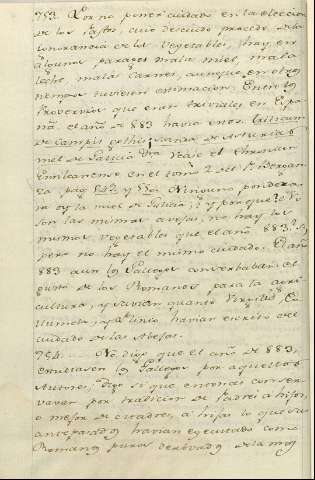 753. Por no poner cuidado en la eleccion
de los pastos, cuio descuido procede de la
ignorancia de los Vegetables, hay en
algunos parages mala miel, mala
leche, malas Carnes, aunque en otros
tiempos tuvieron estimacion. Entre los
Proverbios que eran triviales en Espa
ña, el año de 883 havia
de Campis
mel de Galicia Vea Vease el Chronicon
Emilianense en el tomo 2 del P. Bergan
za pag. y Ninguno pondera
ra oy la miel de Galicia; y porque?
son las mismas avejas, no hay los
mismos vegetables que el año 883? Si,
pero no hay el mismo cuidado. El año
883 aun los Gallegos conservaban el
gusto de los Romanos para la agri
cultura, y savian quanto Virgilio, Co
lumela, y Plinio havian escrito del
cuidado de las Abejas.
754. No digo que el año de 883,
estudiasen los Gallegos por aquellos
Autores; digo si que entonces conser
vavan por tradicion de padres a hijos,
o mejor de criadores, a hijos lo que sus
antepasados havian executado como
Romanos puros derivados de la mis